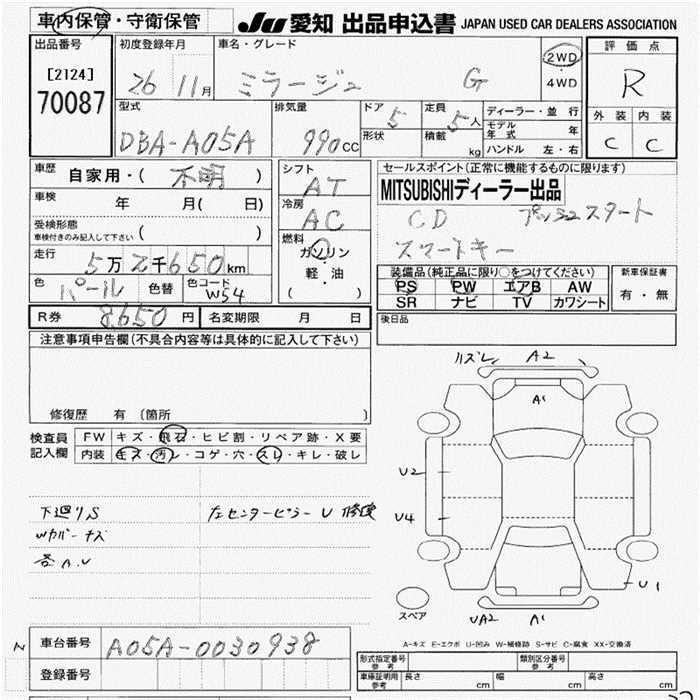 車内保管・守衛保管
JU 愛知 出品申込書 JAPAN USED CAR DEALERS ASSOCIATION
出品番号
[2124]
70087
初度登録年月
26 11月
車名・グレード
ミラージュ G
2WD
・
4WD
評価点
R
外装 内装
C C
型式
DBA-A05A
排気量
990cc
ドア 5
形状
定員 5人
積載 kg
ディーラー・並行
モデル年式 年
ハンドル 左・右
車歴 自家用・(不明)
車検 年 月( 日)
受検形態
車検付きのみ記入して下さい ( )
走行 5万2千650km
色 パール 色替 色コード W54
シフト
AT
冷房
AC
燃料
ガソリン
軽・油
( )
セールスポイント(正常に機能するものに限ります)
MITSUBISHIディーラー出品
CD プッシュスタート
スマートキー
装備品(純正品に限り○をつけてください)
PS PW エアB AW
SR ナビ TV カワシート
新車保証書
有・無
R券 8,650円 名変期限 月 日
後日品
注意事項申告欄(不具合内容等は具体的に記入して下さい)
修復歴 有 (箇所 )
検査員
記入欄
FW キズ・飛石・ヒビ割・リペア跡・X要
内装 キズ・汚レ・コゲ・穴・スレ・キレ・破レ
下廻りS 左センターピラーU 修復
Wカバーキズ
各A.U
リズレ A2
A1
U2
U4
U1
スペア
UA2 A1
A-キズ E-エクボ U-凹み W-補修跡 S-サビ C-腐食 XX-交換済
N 車台番号 A05A-0030938
登録番号
形式指定番号 参考
類別区分番号 参考
車庫証明用 参考 長さ cm 幅 cm 高さ cm